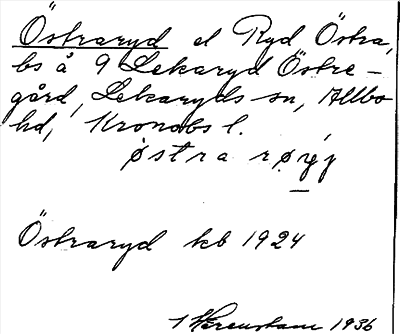 Östraryd el Ryd Östra,
bs å 9 Lekaryd Östre-
gård, Lekaryds sn, Allbo
hd, Kronobs l.
østra rø
Östraryd kb 1924
1936